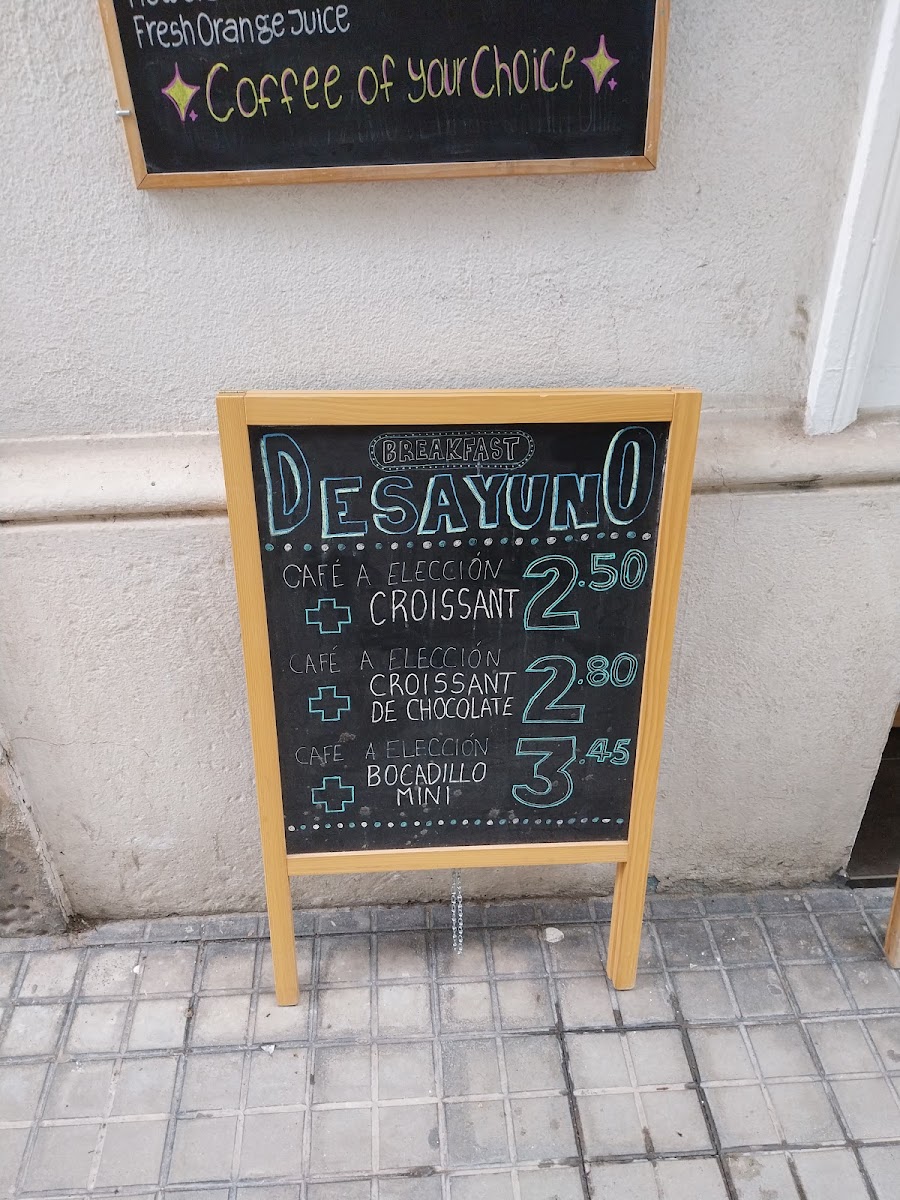 Fresh Orange Juice
Coffee of your Choice
BREAKFAST
DESAYUNO
CAFÉ A ELECCIÓN
+ CROISSANT 2.50
CAFÉ A ELECCIÓN
+ CROISSANT
DE CHOCOLATE 2.80
CAFÉ A ELECCIÓN
+ BOCADILLO
MINI 3.45